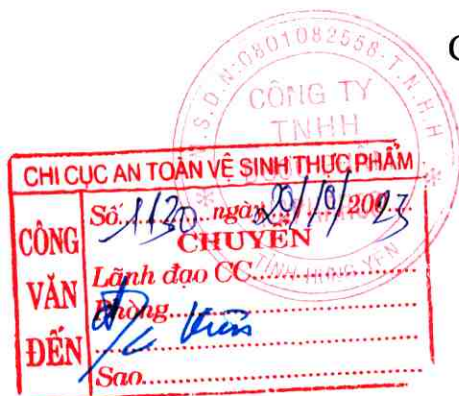 C
M.S.D.N:0801082558-T.N.H.H
CÔNG TY
TNHH
TỈNH HƯNG YÊN
CHI CỤC AN TOÀN VỆ SINH THỰC PHẨM
CÔNG VĂN ĐẾN
Số: 1130 ngày 20/10/2023
CHUYỂN
Lãnh đạo CC
Phòng
Sao